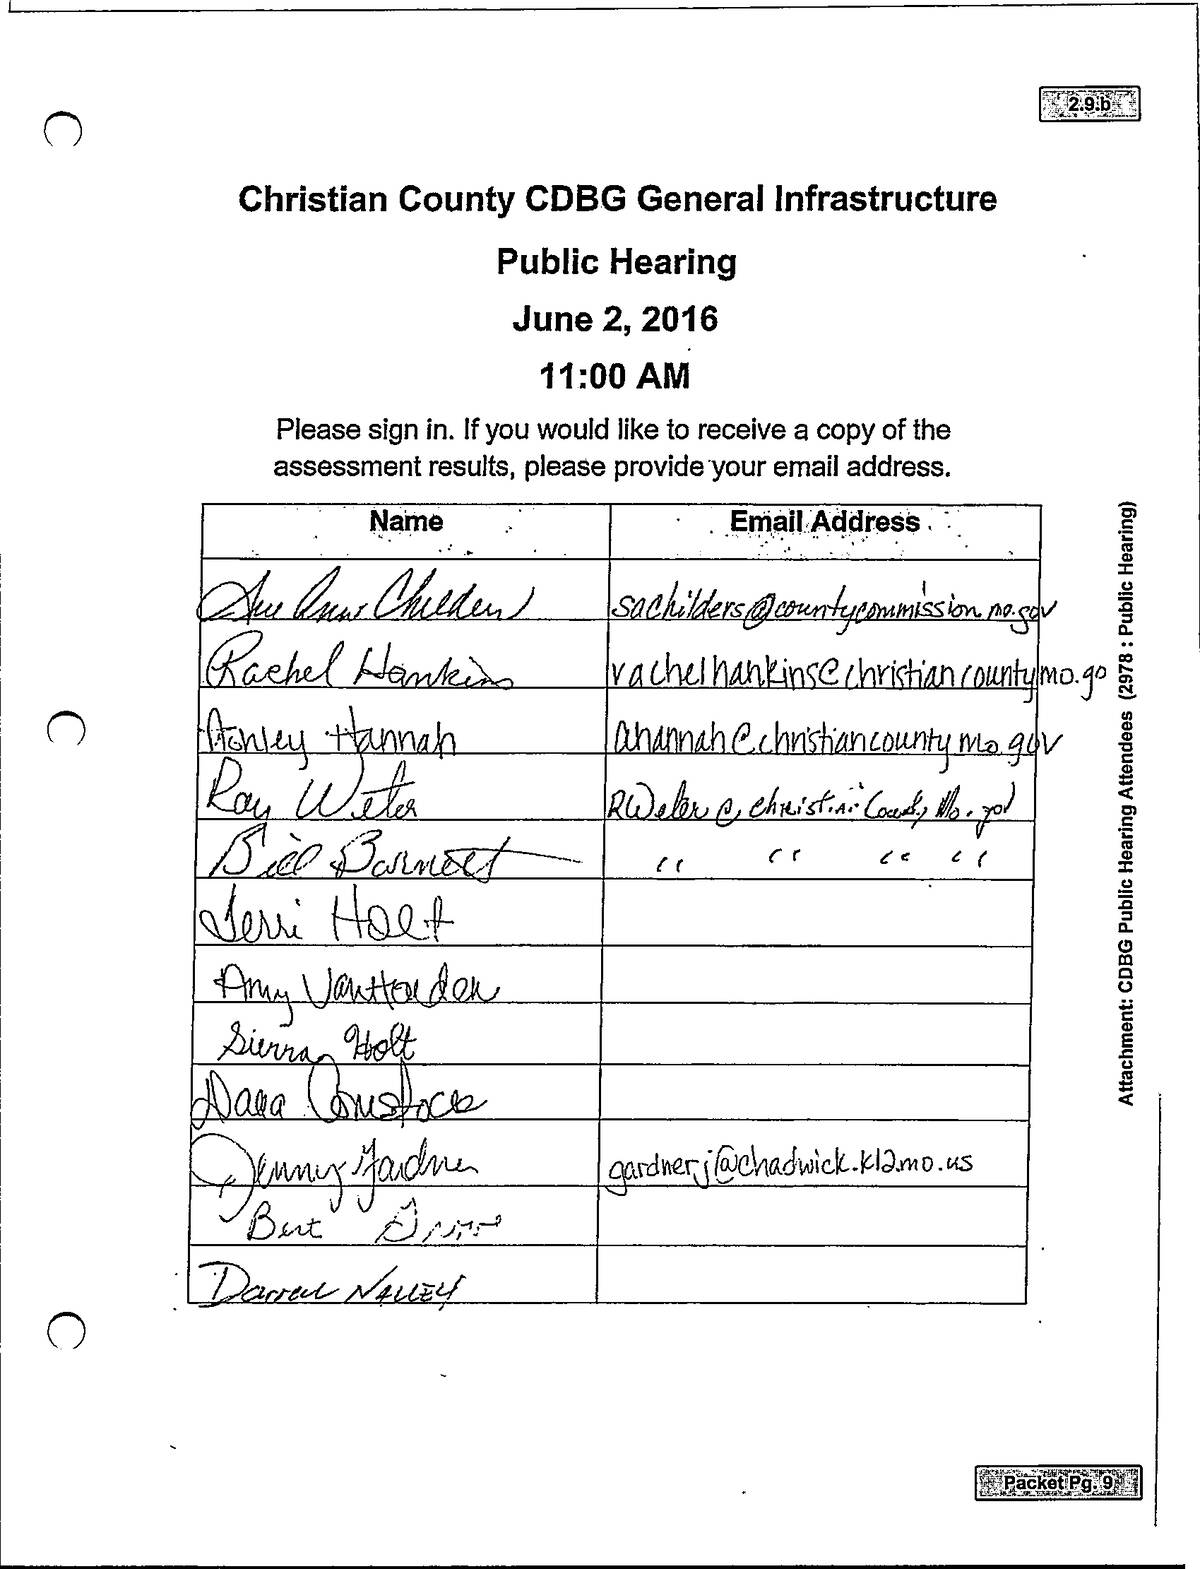 2.9.b
Christian County CDBG General Infrastructure
Public Hearing
June 2, 2016
11:00 AM
Please sign in. If you would like to receive a copy of the
assessment results, please provide your email address.
Name Email Address
Sue Ann Childers sachilders@countycommission.mo.gov
Rachel Hankins rachelhankins@christiancountymo.go
Ashley Hannah ahannah@christiancountymo.gov
Ray Weter RWeter@christianCountyMo.gov
Bill Barnett " " " "
Terri Holt
Amy VanHorden
Sierra Holt
Dana Comstock
Jenny Gardner gardnerj@chadwick.k12.mo.us
Bert
Darrell NALLEY
Attachment: CDBG Public Hearing Attendees (2978 : Public Hearing)
Packet Pg. 9